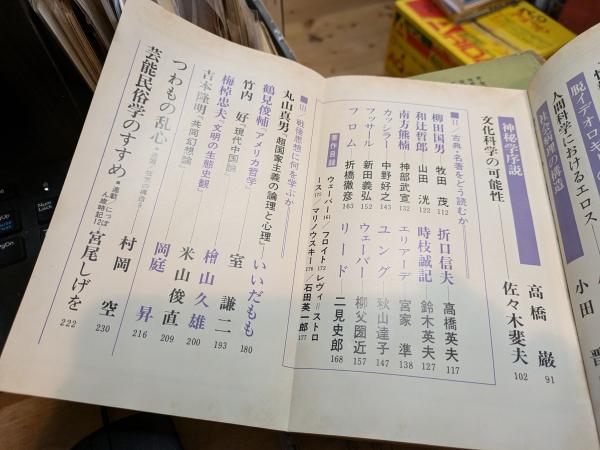 脱イデオロギー
人間科学におけるエロス
小田 晋
社会病理の構造
神秘学序説
高橋 巌 91
文化科学の可能性
佐々木斐夫 102
■Ⅱ 古典・名著をどう読むか
柳田国男 牧田 茂 112
折口信夫 高橋英夫 117
和辻哲郎 山田 洸 122
時枝誠記 鈴木英夫 127
南方熊楠 神部武宣 132
エリアーデ 宮家 準 138
カッシラー 中野好之 143
ユング 秋山達子 147
フッサール 新田義弘 152
ウェーバー 柳父圀近 157
フロム 折橋徹彦 163
リード 二見史郎 168
著作目録
ウェーバー 161/フロイト 172 レヴィ=ストロ
ース 175/マリノウスキー 176/石田英一郎
177
■Ⅲ 戦後思想に何を学ぶか
丸山真男『超国家主義の論理と心理』 いいだもも 180
鶴見俊輔『アメリカ哲学』
竹内 好『現代中国論』 室 謙二 193
梅棹忠夫『文明の生態史観』 桧山久雄 200
吉本隆明『共同幻想論』 米山俊直 209
岡庭 昇 216
つわもの乱心
村岡 空 230
芸能民俗学のすすめ
■連載・にっぽ
ん歳時記12
宮尾しげを 222